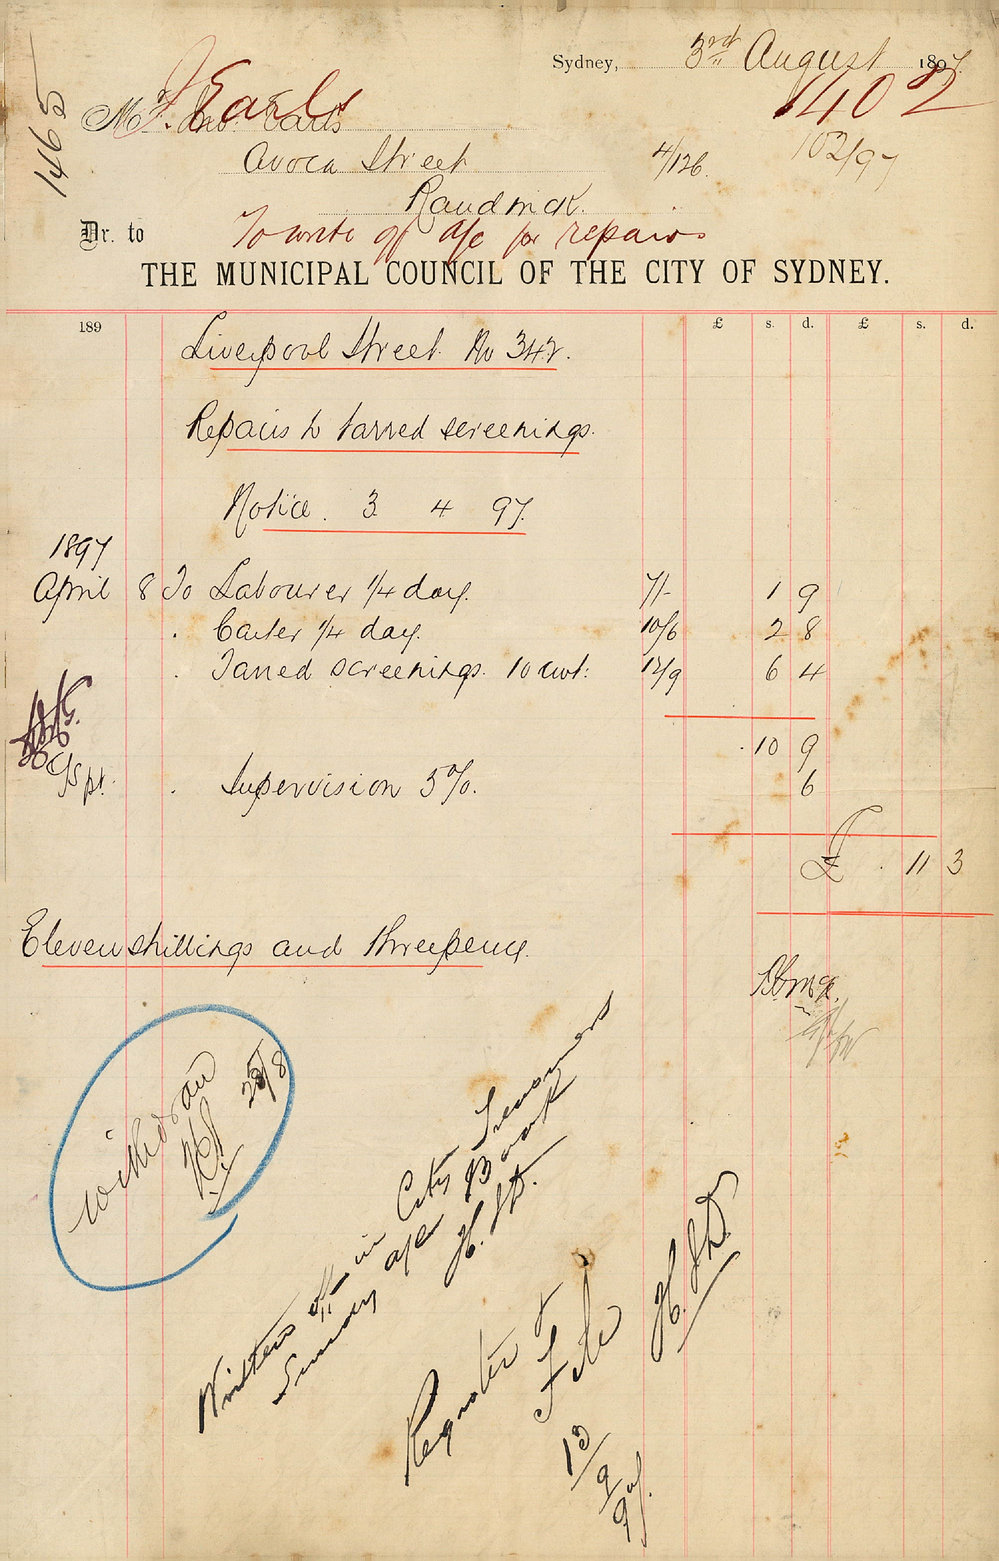 Sydney, 3rd August 1897.
1402
J Earls
Mr. Jno. Earls
1465
Avoca Street
4/126.
102/97
Randwick.
Dr. to
To write off a/c for repairs
THE MUNICIPAL COUNCIL OF THE CITY OF SYDNEY.
189 £ s. d. £ s. d.
Liverpool Street No 342.
Repairs to tarred screenings.
Notice. 3 4 97.
1897
April 8 To Labourer 1/4 day. 7/- 1 9
. Carter 1/4 day. 10/6 2 8
. Tarred screenings. 10 cwt: 12/9 6 4
. 10 9
. Supervision 5%. 6
£ . 11 3
Eleven shillings and threepence.
withdrawn
25/8
Written off in City Treasurers
Sundry a/c Book
H. S. D.
Register &
File
H. S. D.
13/9/97.